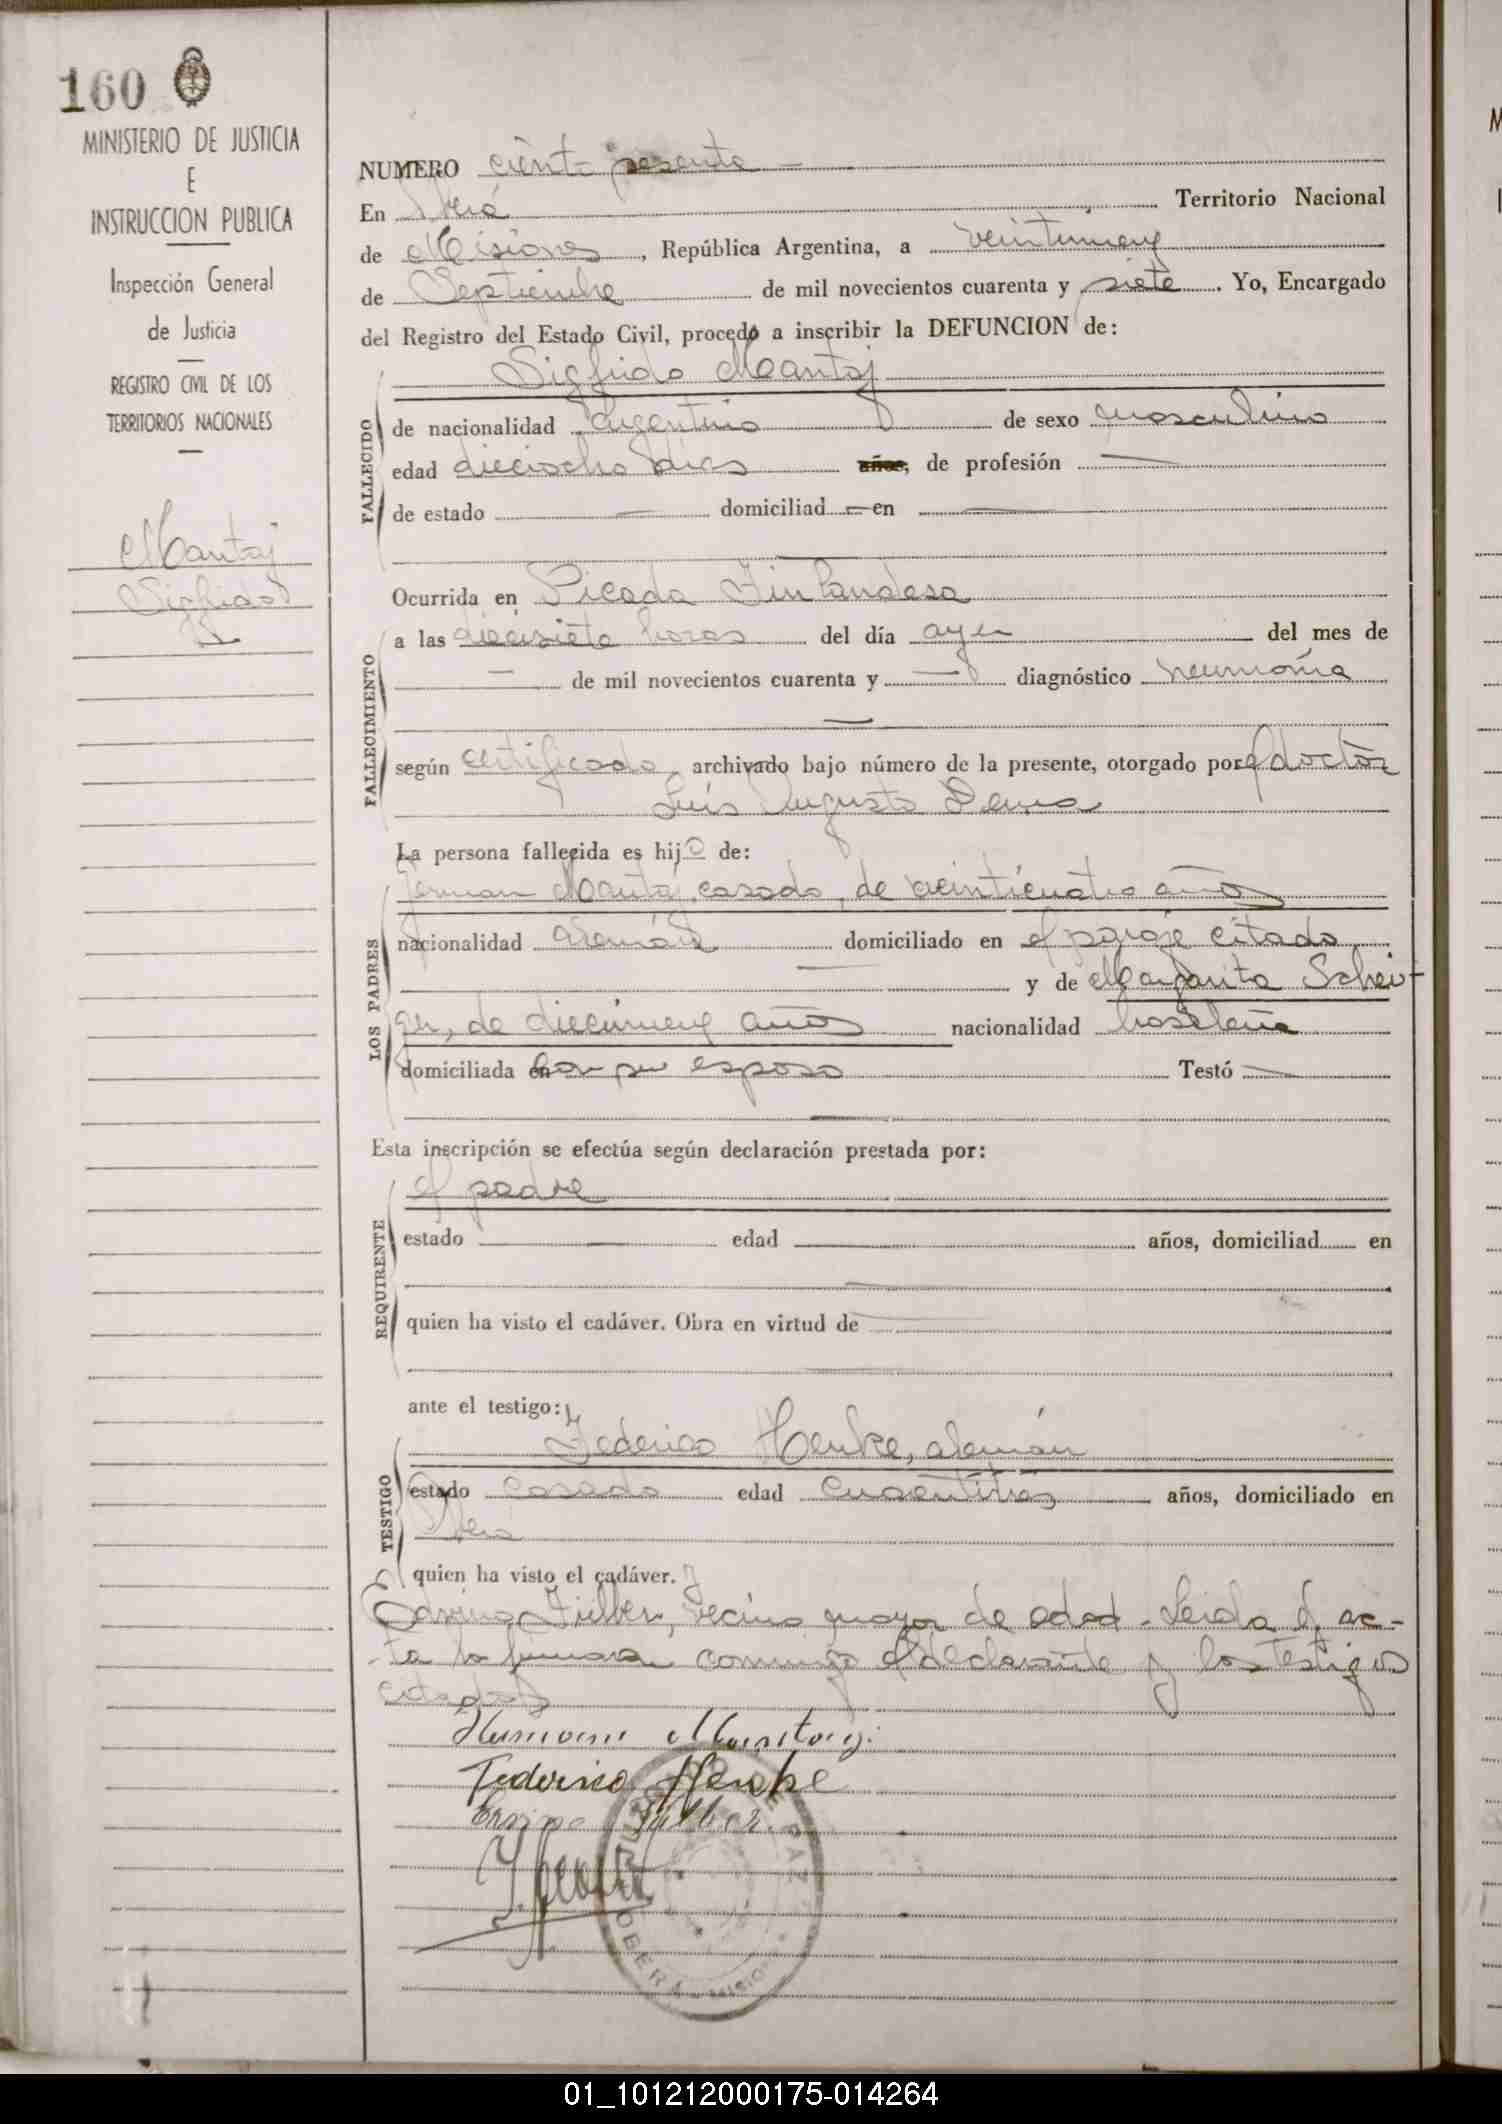 160
MINISTERIO DE JUSTICIA
E
INSTRUCCION PUBLICA
Inspección General
de Justicia
REGISTRO CIVIL DE LOS
TERRITORIOS NACIONALES
Mantaj
Sigfrido
NUMERO ciento sesenta
En Oberá Territorio Nacional
de Misiones, República Argentina, a veintinueve
de Septiembre de mil novecientos cuarenta y siete. Yo, Encargado
del Registro del Estado Civil, procedo a inscribir la DEFUNCION de:
Sigfrido Mantaj
FALLECIDO
de nacionalidad argentino de sexo masculino
edad dieciocho dias años, de profesión —
de estado — domiciliad — en —
FALLECIMIENTO
Ocurrida en Picada Finlandesa
a las diecisiete horas del día ayer del mes de
— de mil novecientos cuarenta y — diagnóstico neumonía
según certificado archivado bajo número de la presente, otorgado por el doctor
Luis Augusto
La persona fallecida es hijo de:
LOS PADRES
German Mantaj, casado, de veinticuatro años
nacionalidad alemán domiciliado en el paraje citado
— y de Margarita
ger, de diecinueve años nacionalidad brasileña
domiciliada en con su esposo Testó —
Esta inscripción se efectúa según declaración prestada por:
REQUIRENTE
el padre
estado — edad — años, domiciliad en
quien ha visto el cadáver. Obra en virtud de —
ante el testigo: y
TESTIGO
Federico Henke, alemán
estado casado edad cuarentitres años, domiciliado en
Oberá
quien ha visto el cadáver. y
vecino mayor de edad. Leida el ac-
ta la firmaron conmigo el declarante y los testigos
citados
Hermann Mantaj.
Federico Henke
JUZGADO DE PAZ
OBERA - MISIONES
01_101212000175-014264